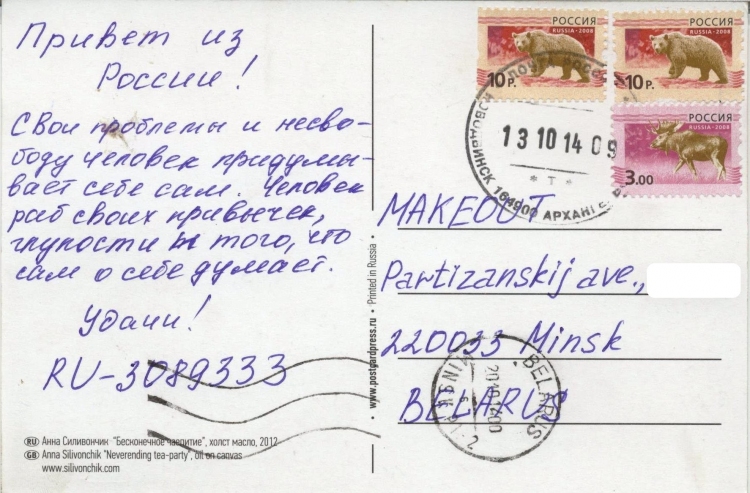 Привет из
России!
Свои проблемы и несво-
боду человек придумы-
вает себе сам. Человек
раб своих привычек,
глупости и того, что
сам о себе думает.
Удачи!
RU-3089333
RU Анна Силивончик "Бесконечное чаепитие", холст масло, 2012
GB Anna Silivonchik "Neverending tea-party", oil on canvas
www.silivonchik.com
• www.postcardpress.ru • Printed in Russia •
РОССИЯ
RUSSIA • 2008
10 Р.
РОССИЯ
RUSSIA • 2008
10 Р.
РОССИЯ
RUSSIA • 2008
3.00
13 10 14 09
* Т *
НОВОДВИНСК 164900 АРХАНГ
MAKEOUT
Partizanskij ave.,
220033 Minsk
BELARUS
MINSK
BELARUS